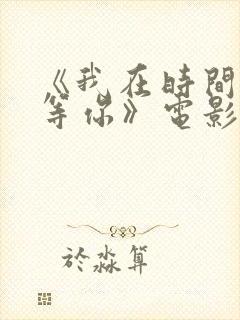 《我在時間
等你》電影
於淼算